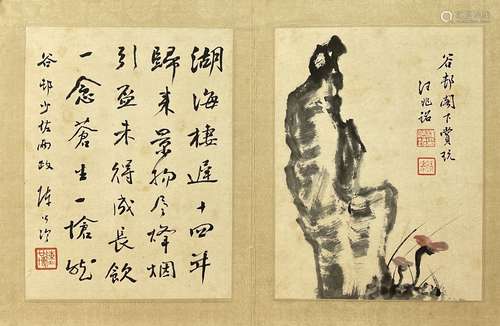 谷邨閣下賞玩
汪兆銘
湖海棲遲十四年
歸来景物尽烽烟
引盃未得成長飲
一念蒼生一愴然
谷邨少佐雨政 陳公博